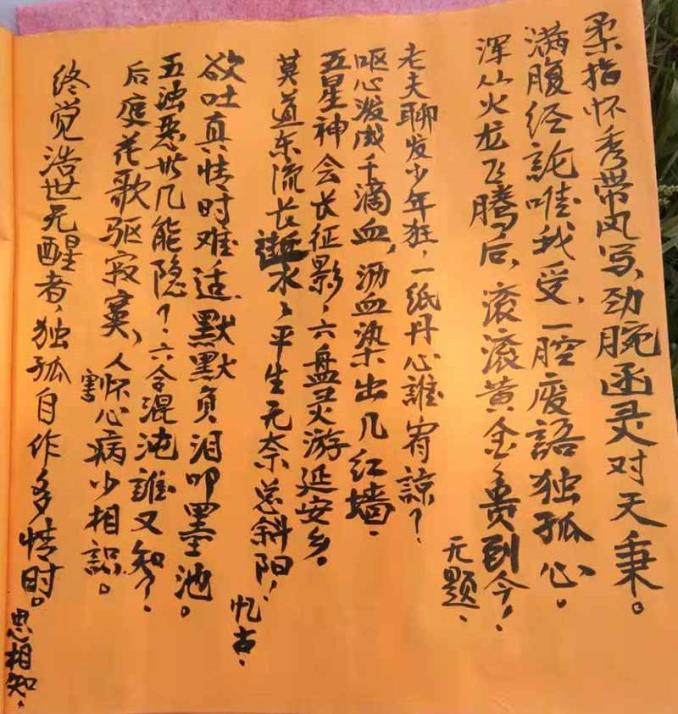 柔指怀秀带风写,劲腕函灵对天秉。
满腹经訛唯我受,一腔废語独孤心。
浑从火龙飞腾后,滚滚黄金贵到今!
无题.
老夫聊发少年狂,一纸丹心誰宥諒?
呕心泼成千滴血,沥血染出几红墙.
五星神会长征影,六盘灵游延安乡.
莫道东流长逝水,平生无奈总斜阳!
忆古.
欲吐真情时难适,默默负泪叩墨池。
五浊恶世几能隐?六合混沌誰又知?
后庭花歌驱寂寞,人怀心病少相識。
害
终觉浩世无醒者,独孤自作多情时。
思相知.